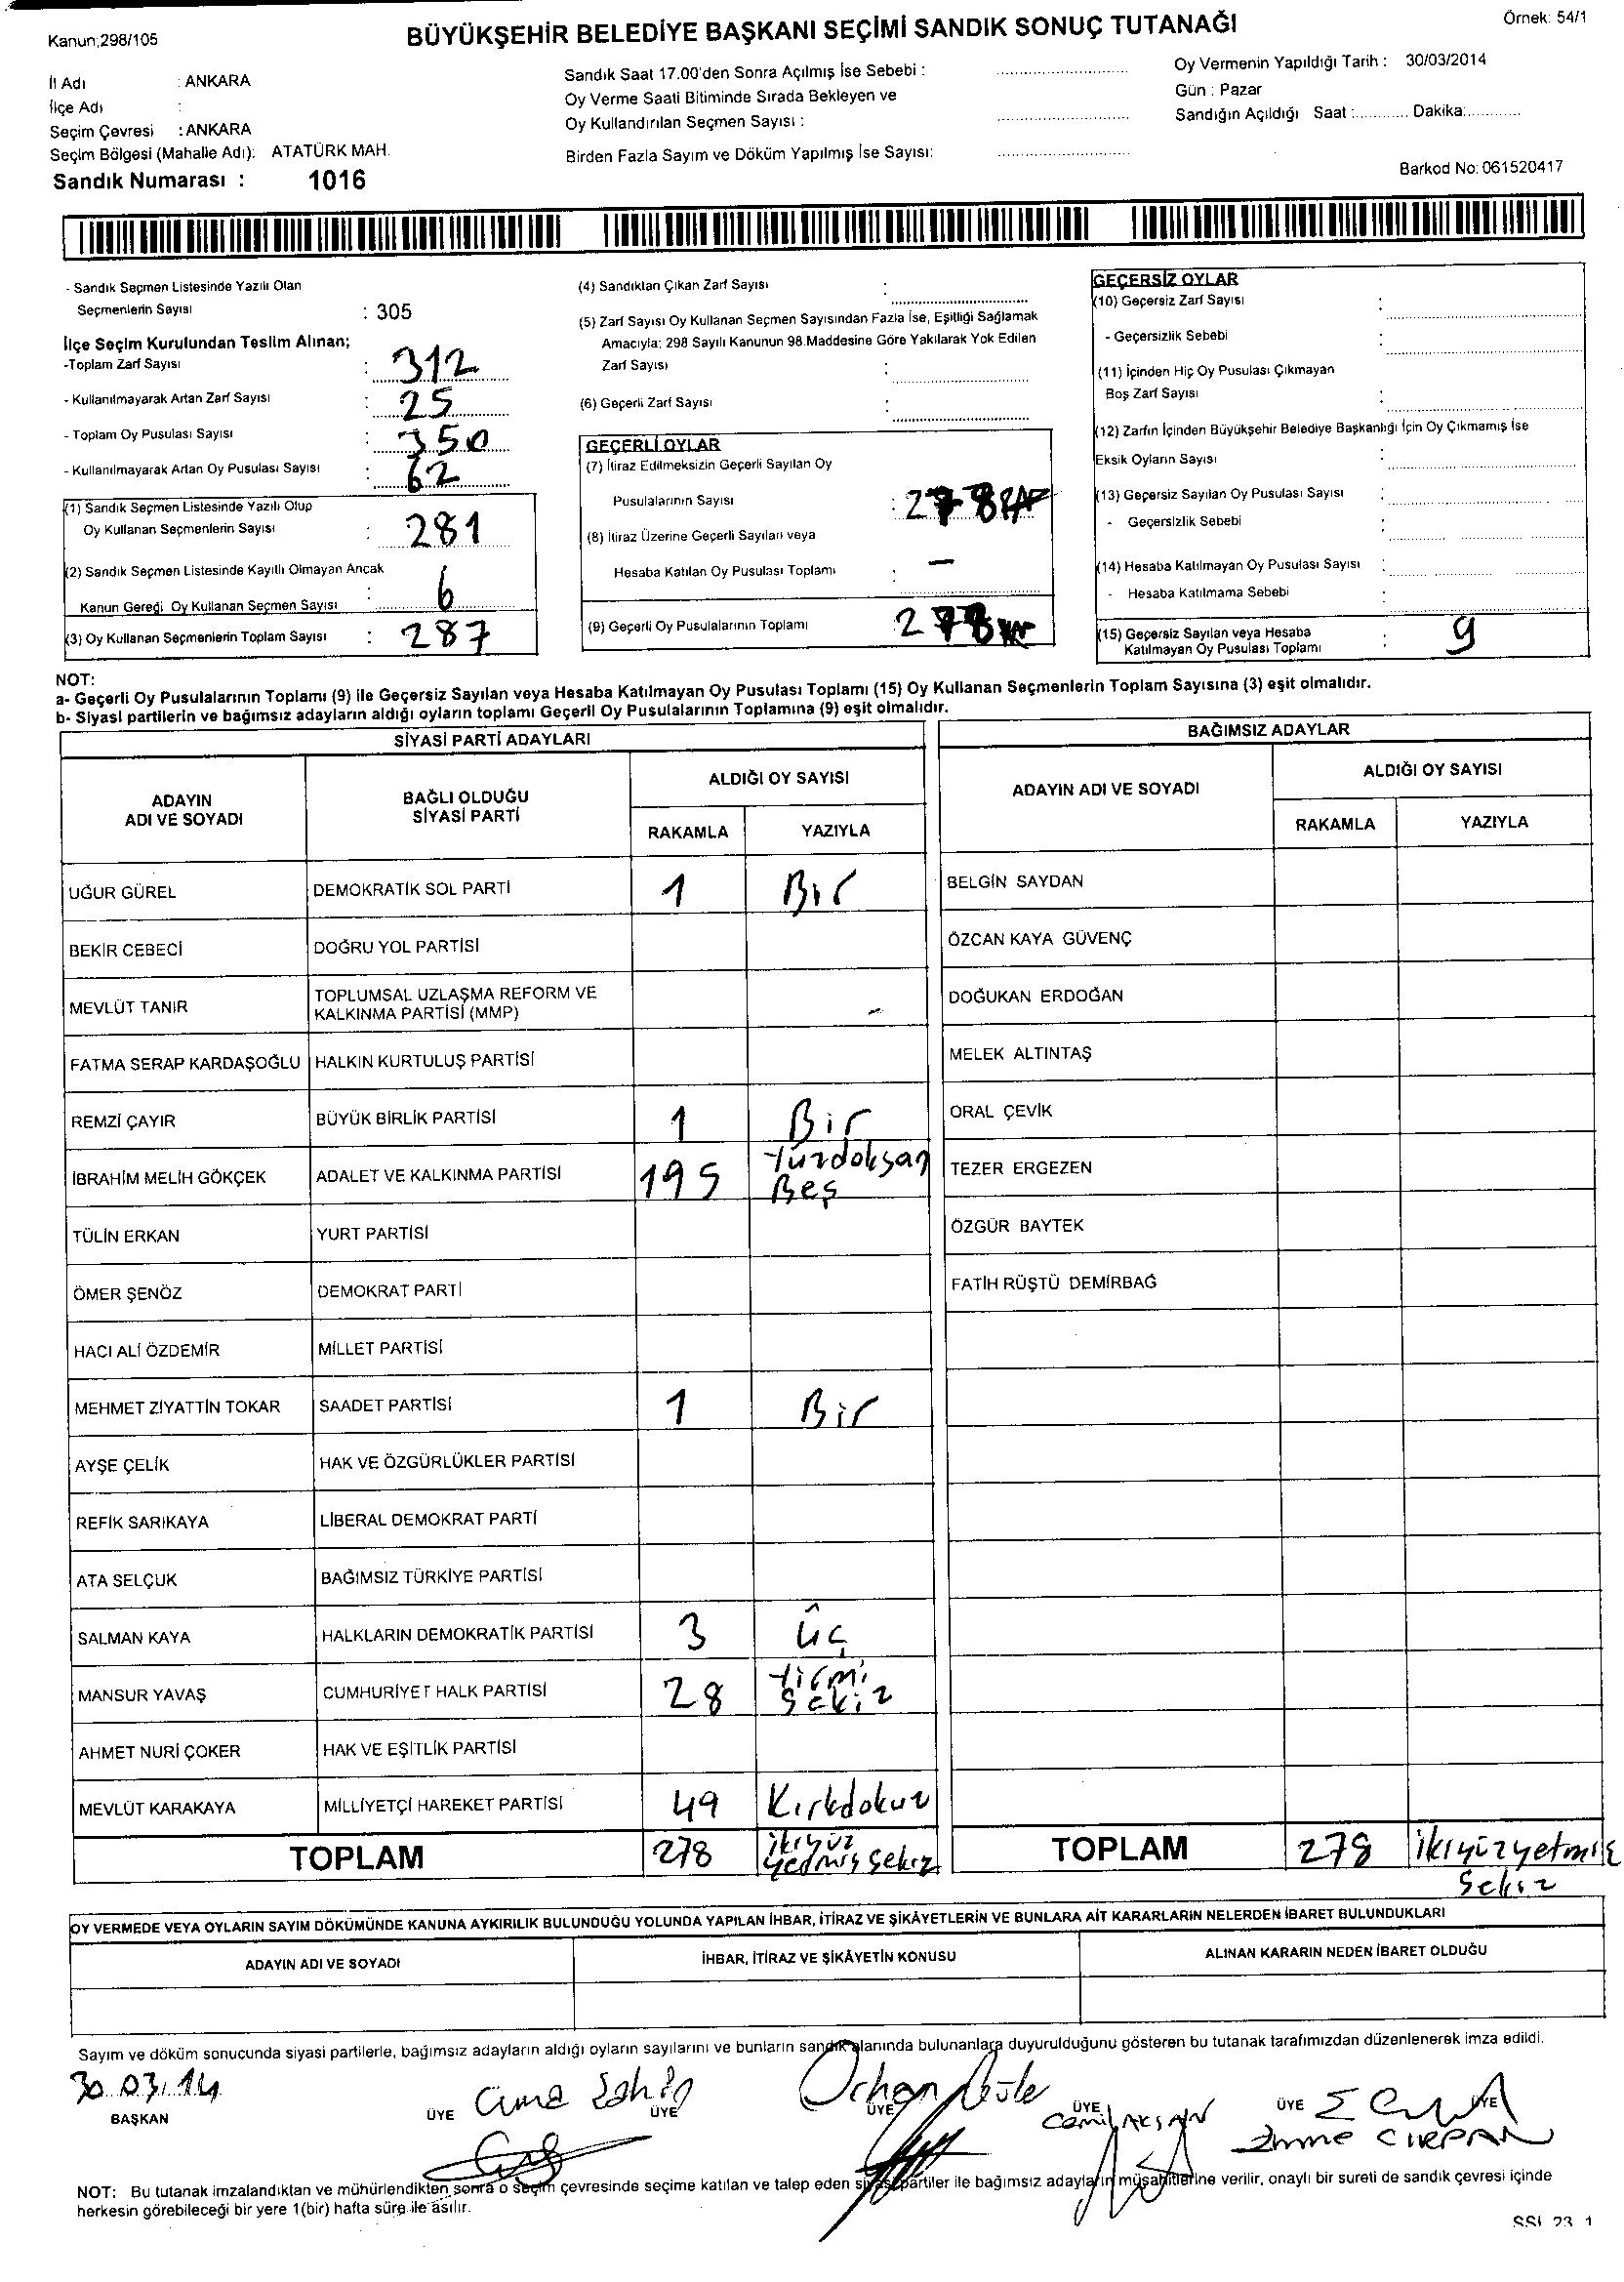 Kanun;298/105
BÜYÜKŞEHİR BELEDİYE BAŞKANI SEÇİMİ SANDIK SONUÇ TUTANAĞI
Örnek: 54/1
İl Adı : ANKARA
İlçe Adı :
Seçim Çevresi : ANKARA
Seçim Bölgesi (Mahalle Adı): ATATÜRK MAH.
Sandık Numarası : 1016
Sandık Saat 17.00'den Sonra Açılmış İse Sebebi :
Oy Verme Saati Bitiminde Sırada Bekleyen ve
Oy Kullandırılan Seçmen Sayısı :
Birden Fazla Sayım ve Döküm Yapılmış İse Sayısı:
Oy Vermenin Yapıldığı Tarih : 30/03/2014
Gün : Pazar
Sandığın Açıldığı Saat :............ Dakika:............
Barkod No: 061520417
- Sandık Seçmen Listesinde Yazılı Olan
Seçmenlerin Sayısı : 305
İlçe Seçim Kurulundan Teslim Alınan;
-Toplam Zarf Sayısı : 312
- Kullanılmayarak Artan Zarf Sayısı : 25
- Toplam Oy Pusulası Sayısı : 350
- Kullanılmayarak Artan Oy Pusulası Sayısı : 62
(1) Sandık Seçmen Listesinde Yazılı Olup
Oy Kullanan Seçmenlerin Sayısı : 281
(2) Sandık Seçmen Listesinde Kayıtlı Olmayan Ancak
Kanun Gereği Oy Kullanan Seçmen Sayısı : 6
(3) Oy Kullanan Seçmenlerin Toplam Sayısı : 287
(4) Sandıktan Çıkan Zarf Sayısı :
(5) Zarf Sayısı Oy Kullanan Seçmen Sayısından Fazla İse, Eşitliği Sağlamak
Amacıyla; 298 Sayılı Kanunun 98.Maddesine Göre Yakılarak Yok Edilen
Zarf Sayısı :
(6) Geçerli Zarf Sayısı :
GEÇERLİ OYLAR
(7) İtiraz Edilmeksizin Geçerli Sayılan Oy
Pusulalarının Sayısı : 278
(8) İtiraz Üzerine Geçerli Sayılan veya
Hesaba Katılan Oy Pusulası Toplamı : -
(9) Geçerli Oy Pusulalarının Toplamı : 278
GEÇERSİZ OYLAR
(10) Geçersiz Zarf Sayısı :
- Geçersizlik Sebebi :
(11) İçinden Hiç Oy Pusulası Çıkmayan
Boş Zarf Sayısı :
(12) Zarfın İçinden Büyükşehir Belediye Başkanlığı İçin Oy Çıkmamış İse
Eksik Oyların Sayısı :
(13) Geçersiz Sayılan Oy Pusulası Sayısı :
- Geçersizlik Sebebi :
(14) Hesaba Katılmayan Oy Pusulası Sayısı :
- Hesaba Katılmama Sebebi :
(15) Geçersiz Sayılan veya Hesaba
Katılmayan Oy Pusulası Toplamı : 9
NOT:
a- Geçerli Oy Pusulalarının Toplamı (9) ile Geçersiz Sayılan veya Hesaba Katılmayan Oy Pusulası Toplamı (15) Oy Kullanan Seçmenlerin Toplam Sayısına (3) eşit olmalıdır.
b- Siyasi partilerin ve bağımsız adayların aldığı oyların toplamı Geçerli Oy Pusulalarının Toplamına (9) eşit olmalıdır.
SİYASİ PARTİ ADAYLARI
ADAYIN ADI VE SOYADI
BAĞLI OLDUĞU SİYASİ PARTİ
ALDIĞI OY SAYISI
RAKAMLA YAZIYLA
UĞUR GÜREL DEMOKRATİK SOL PARTİ 1 Bir
BEKİR CEBECİ DOĞRU YOL PARTİSİ
MEVLÜT TANIR TOPLUMSAL UZLAŞMA REFORM VE
KALKINMA PARTİSİ (MMP) -
FATMA SERAP KARDAŞOĞLU HALKIN KURTULUŞ PARTİSİ
REMZİ ÇAYIR BÜYÜK BİRLİK PARTİSİ 1 Bir
İBRAHİM MELİH GÖKÇEK ADALET VE KALKINMA PARTİSİ 195 Yüzdoksan
Beş
TÜLİN ERKAN YURT PARTİSİ
ÖMER ŞENÖZ DEMOKRAT PARTİ
HACI ALİ ÖZDEMİR MİLLET PARTİSİ
MEHMET ZİYATTİN TOKAR SAADET PARTİSİ 1 Bir
AYŞE ÇELİK HAK VE ÖZGÜRLÜKLER PARTİSİ
REFİK SARIKAYA LİBERAL DEMOKRAT PARTİ
ATA SELÇUK BAĞIMSIZ TÜRKİYE PARTİSİ
SALMAN KAYA HALKLARIN DEMOKRATİK PARTİSİ 3 Üç
MANSUR YAVAŞ CUMHURİYET HALK PARTİSİ 28 Yirmi
Sekiz
AHMET NURİ ÇOKER HAK VE EŞİTLİK PARTİSİ
MEVLÜT KARAKAYA MİLLİYETÇİ HAREKET PARTİSİ 49 Kırkdokuz
TOPLAM 278 ikiyüz
yedmiş sekiz
BAĞIMSIZ ADAYLAR
ADAYIN ADI VE SOYADI
ALDIĞI OY SAYISI
RAKAMLA YAZIYLA
BELGİN SAYDAN
ÖZCAN KAYA GÜVENÇ
DOĞUKAN ERDOĞAN
MELEK ALTINTAŞ
ORAL ÇEVİK
TEZER ERGEZEN
ÖZGÜR BAYTEK
FATİH RÜŞTÜ DEMİRBAĞ
TOPLAM 278 ikiyüzyetmiş
Sekiz
OY VERMEDE VEYA OYLARIN SAYIM DÖKÜMÜNDE KANUNA AYKIRILIK BULUNDUĞU YOLUNDA YAPILAN İHBAR, İTİRAZ VE ŞİKÂYETLERİN VE BUNLARA AİT KARARLARIN NELERDEN İBARET BULUNDUKLARI
ADAYIN ADI VE SOYADI İHBAR, İTİRAZ VE ŞİKÂYETİN KONUSU ALINAN KARARIN NEDEN İBARET OLDUĞU
Sayım ve döküm sonucunda siyasi partilerle, bağımsız adayların aldığı oyların sayılarını ve bunların sandık alanında bulunanlara duyurulduğunu gösteren bu tutanak tarafımızdan düzenlenerek imza edildi.
30.03.14
Cuma Şahin Orhan Cemil AKSAN
BAŞKAN ÜYE ÜYE ÜYE ÜYE ÜYE ÜYE
NOT: Bu tutanak imzalandıktan ve mühürlendikten sonra o seçim çevresinde seçime katılan ve talep eden siyasi partiler ile bağımsız adayların müşahitlerine verilir, onaylı bir sureti de sandık çevresi içinde
herkesin görebileceği bir yere 1(bir) hafta süre ile asılır.